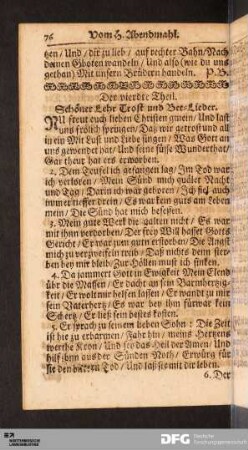 76 Vom H. Abendmahl.
tzen / Und / dir zu lieb / auf rechter Bahn / Nach
deinen Gboten wandeln / Und also (wie du uns
gethan) Mit unsern Brüdern handeln. P. B.
Der vierdte Theil.
Schöner Lehr Trost und Bet-Lieder.
NU freut euch lieben Christen gmein / Und last
uns frölich sprugen / Daß wir getrost und all
in ein Mit Lust und Liebe singen / Was Gott an
uns gewendet hat / Und seine süsse Wunderthat /
Gar theur hat ers erworben.
2. Dem Teufel ich gefangen lag / Im Tod war
ich verloren / Mein Sünd mich quälet Nacht
und Tag / Darin ich war geboren / Ich fiel auch
immer tieffer drein / Es war kein guts am leben
mein / Die Sünd hat mich besessen.
3. Mein gute Werk die galten nicht / Es war
mit ihm verdorben / Der frey Will hasset Gotts
Gericht / Er war zum gutn erstorben / Die Angst
mich zu verzweifeln trieb / Daß nichts denn ster-
ben bey mir bleib / Zur Höllen must ich sinken.
4. Da jammert Gott in Ewigkeit Mein Elend
über die Massen / Er dacht an sein Barmhertzig-
keit / Er wolt mir helfen lassen / Er wandt zu mir
sein Vaterhertz / Es war bey ihm fürwar kein
Schertz / Er ließ sein bestes kosten.
5. Er sprach zu seinem lieben Sohn: Die Zeit
ist hie zu erbarmen / Fahr hin / meins Hertzens
werthe Kron / Und sey das Heil der Armen / Und
hilf ihm aus der Sünden Noth / Erwürg für
sie den bittern Tod / Und laß sie mit dir leben.
6. Der
DFG Deutsche
Forschungsgemeinschaft